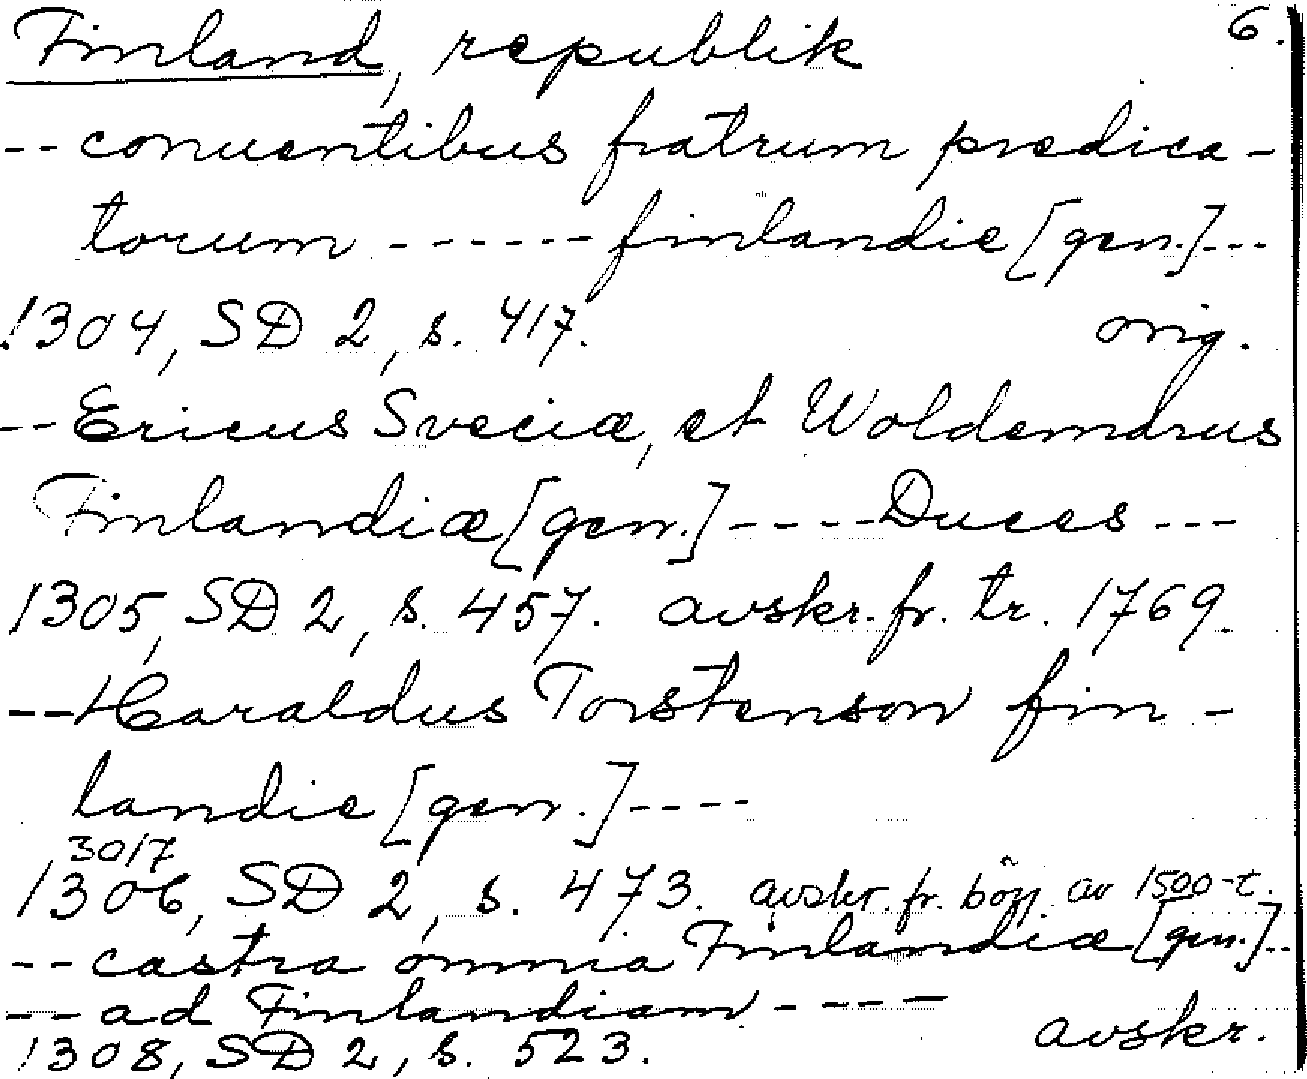 Finland, republik 6.
-- conuentibus fratrum predica-
torum ------ finlandie [gen.] ---
1304, SD 2, s. 417. orig.
-- Ericus Sveciæ, et Woldemarus
Finlandiæ [gen.] ---- Duces ---
1305, SD 2, s. 457. avskr. fr. tr. 1769.
-- Haraldus Torstenson fin-
landie [gen.] ----
30/7
1306, SD 2, s. 473. avskr. fr. börj. av 1500-t.
-- castra omnia Finlandiæ [gen.] --
-- ad Finlandiam ----
1308, SD 2, s. 523. avskr.